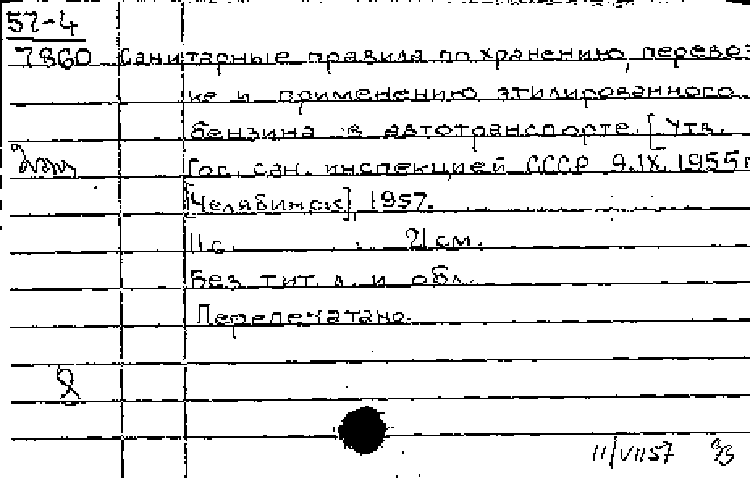 57-4
7860 Санитарные правила по хранению, перевоз
ке и применению этилированного
бензина в автотранспорте. [Утв.
Гос. сан. инспекцией СССР 9.IX.1955г
[Челябинск], 1957.
11с. 21 см.
Без тит. л. и обл.
Перепечатано.
11/VII57